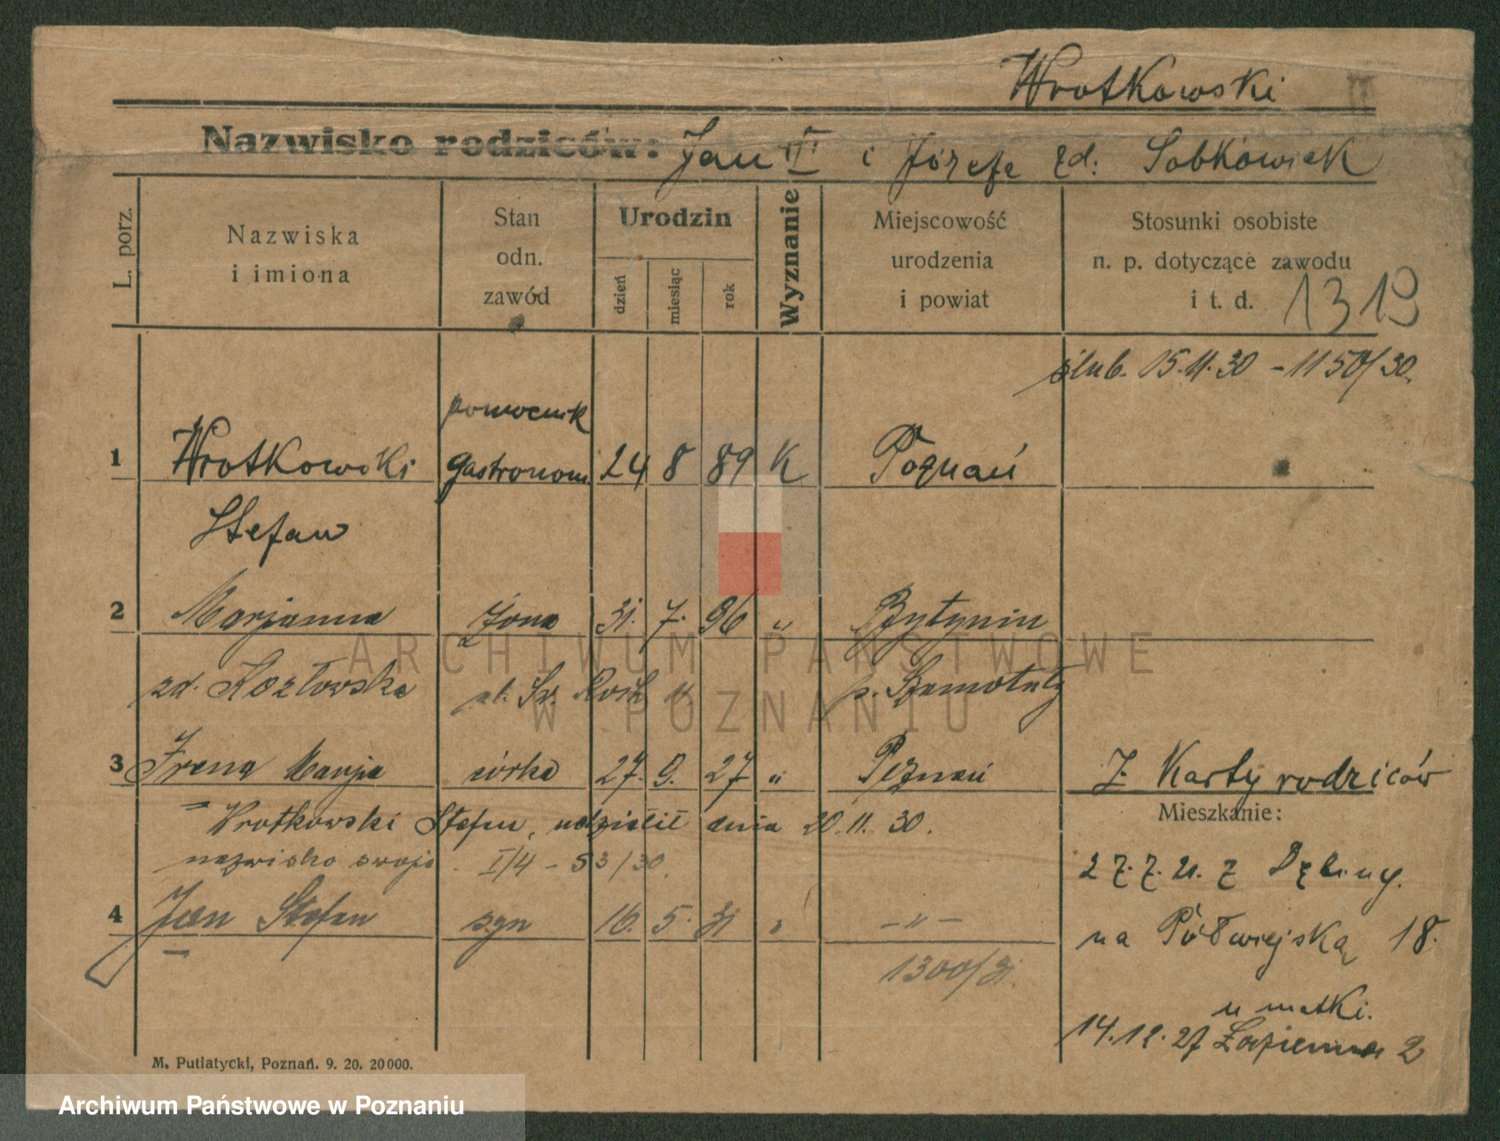 Wrotkowski
Nazwisko rodziców: Jan II i Józefa zd. Sobkowiak
L. porz.
Nazwiska i imiona
Stan odn. zawód
Urodzin
dzień
miesiąc
rok
Wyznanie
Miejscowość urodzenia i powiat
Stosunki osobiste n. p. dotyczące zawodu i t. d.
1319
ślub. 15.11.30 - 1150/30.
pomocnik
1 Wrotkowski gastronom 24 8 89 K Poznań
Stefan
2 Marjanna żona 31. 7. 96 " Bytynin
zd. Kozłowska ul. Św. Roch p. Szamotuły
3 Irena Marja córka 27. 9. 27 " Poznań Z Karty rodziców
Mieszkanie:
Wrotkowski Stefan, udzielił dnia 20.11.30.
nazwisko swoje I/4 - 53/30.
27.7.21. z Dębiny.
4 Jan Stefan syn 16. 5. 31 " -"-
na Półwiejską 18.
1300/31.
u matki.
14.12.27 Łazienna 2
M. Putiatycki, Poznań. 9. 20. 20000.
ARCHIWUM PAŃSTWOWE
W POZNANIU
Archiwum Państwowe w Poznaniu